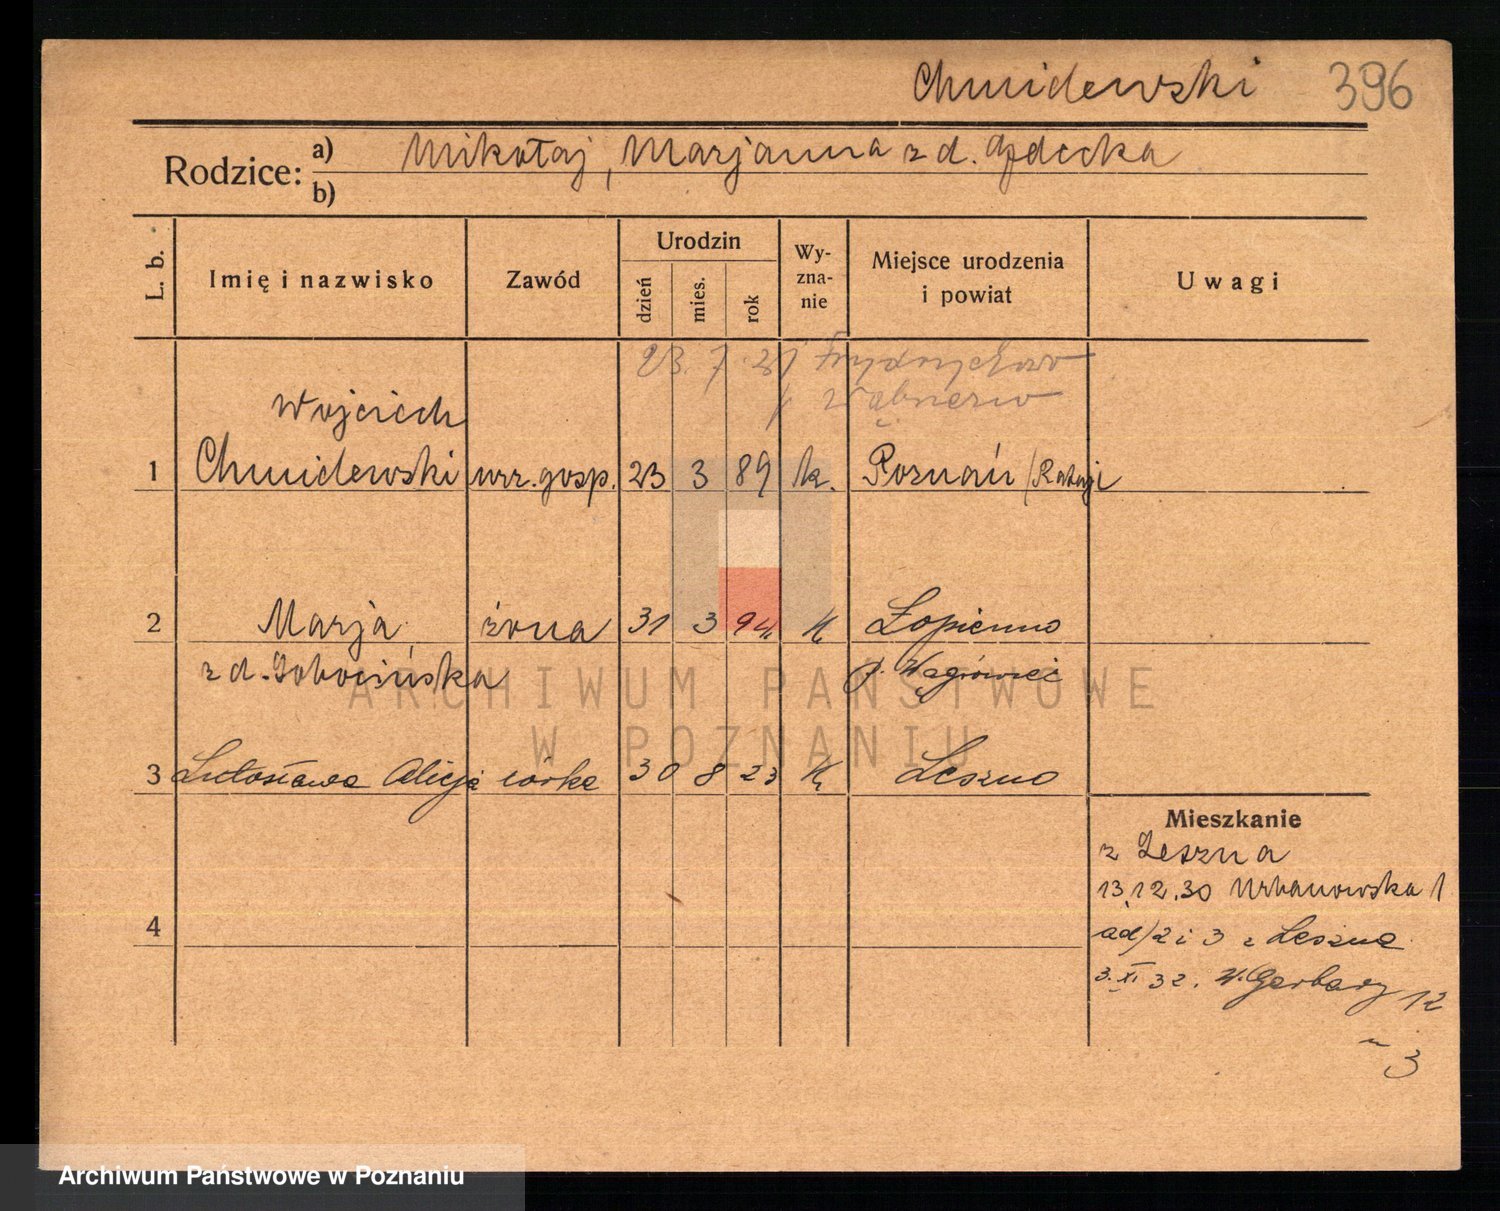 Chmielewski 396
Rodzice: a) Mikołaj, Marjanna z d.
b)
L. b. Imię i nazwisko Zawód Urodzin dzień mies. rok Wy-zna-nie Miejsce urodzenia i powiat Uwagi
23. 7. 31 Frydrychowo
Wąbrzeźno
Wojciech
1 Chmielewski urz. gosp. 23 3 89 k. Poznań /Rataje
2 Marja żona 31 3 94 k Łopienno
z d. Sobocińska p. Wągrówiec
ARCHIWUM PAŃSTWOWE
W POZNANIU
3 Lutosława Alicja córka 30 8 23 k Leszno
Mieszkanie
z Leszna
13.12.30 Urbanowska 1
4
ad/2 i 3 z Leszna
3.XI 32. W. Garbary 12
" 3
Archiwum Państwowe w Poznaniu